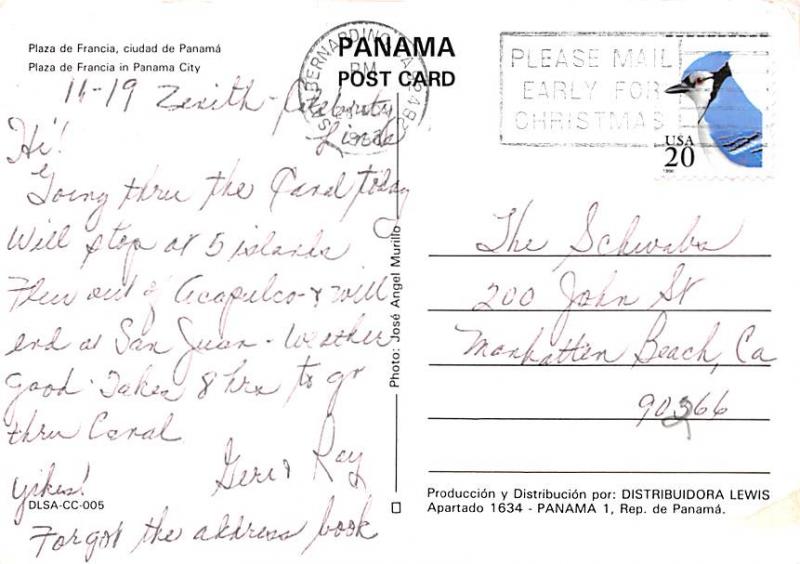 Plaza de Francia, ciudad de Panamá
Plaza de Francia in Panama City
PANAMA
POST CARD
SAN BERNARDINO, CA
PM
PLEASE MAIL
EARLY FOR
CHRISTMAS
USA
20
1996
11-19 Zenith - Celebrity
Hi!
Going thru the Canal today
Will stop at 5 islands
Flew out of Acapulco & will
end at San Juan - Weather
good. Takes 8 hrs to go
thru Canal
Geri & Ray
Yikes!
Forgot the address book
DLSA-CC-005
Photo: José Angel Murillo
The Schwabs
200 John St
Manhatten Beach, Ca
90266
Producción y Distribución por: DISTRIBUIDORA LEWIS
Apartado 1634 - PANAMA 1, Rep. de Panamá.